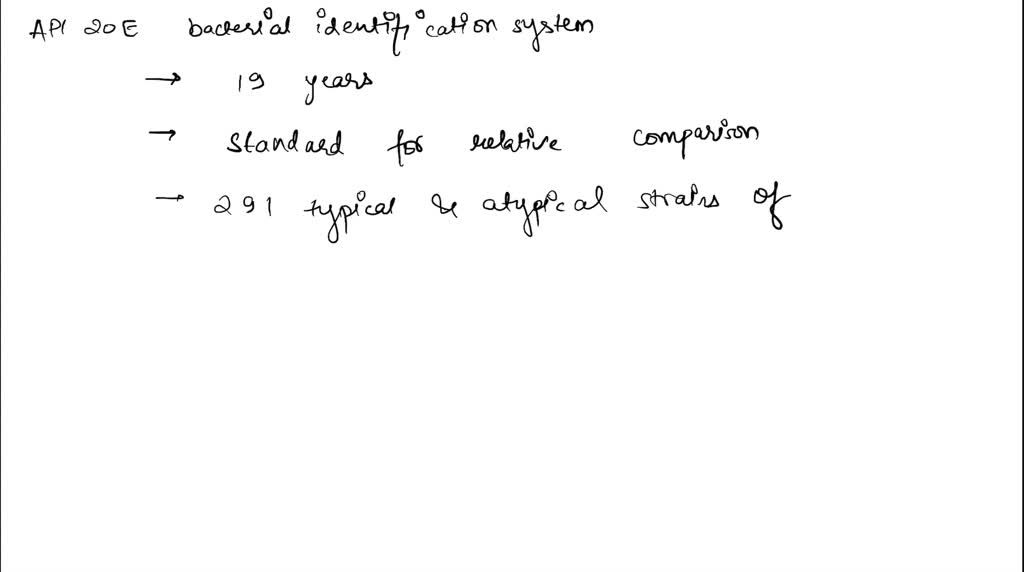 API 20E bacterial identification system
→ 19 years
→ Standard for relative comparison
→ 291 typical & atypical strains of